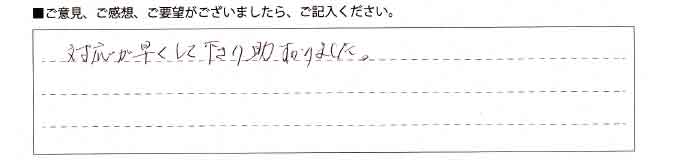 ■ご意見、ご感想、ご要望がございましたら、ご記入ください。
対応が早くして下さり助かりました。